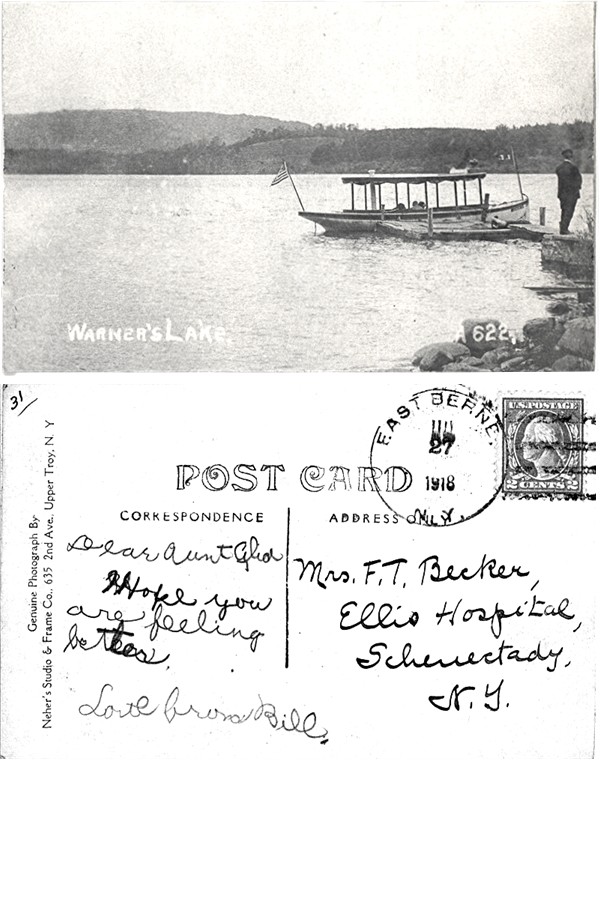 WARNER'S LAKE
A 622.
31/
Genuine Photograph By
Neher's Studio & Frame Co., 635 2nd Ave., Upper Troy, N. Y
POST CARD
CORRESPONDENCE
ADDRESS ONLY
EAST BERNE
27
1918
N.Y.
U.S. POSTAGE
2 CENTS 2
Dear Aunt
Hope you
are feeling
better.
Love from Bill.
Mrs. F. T. Becker,
Ellis Hospital,
Schenectady,
N. Y.